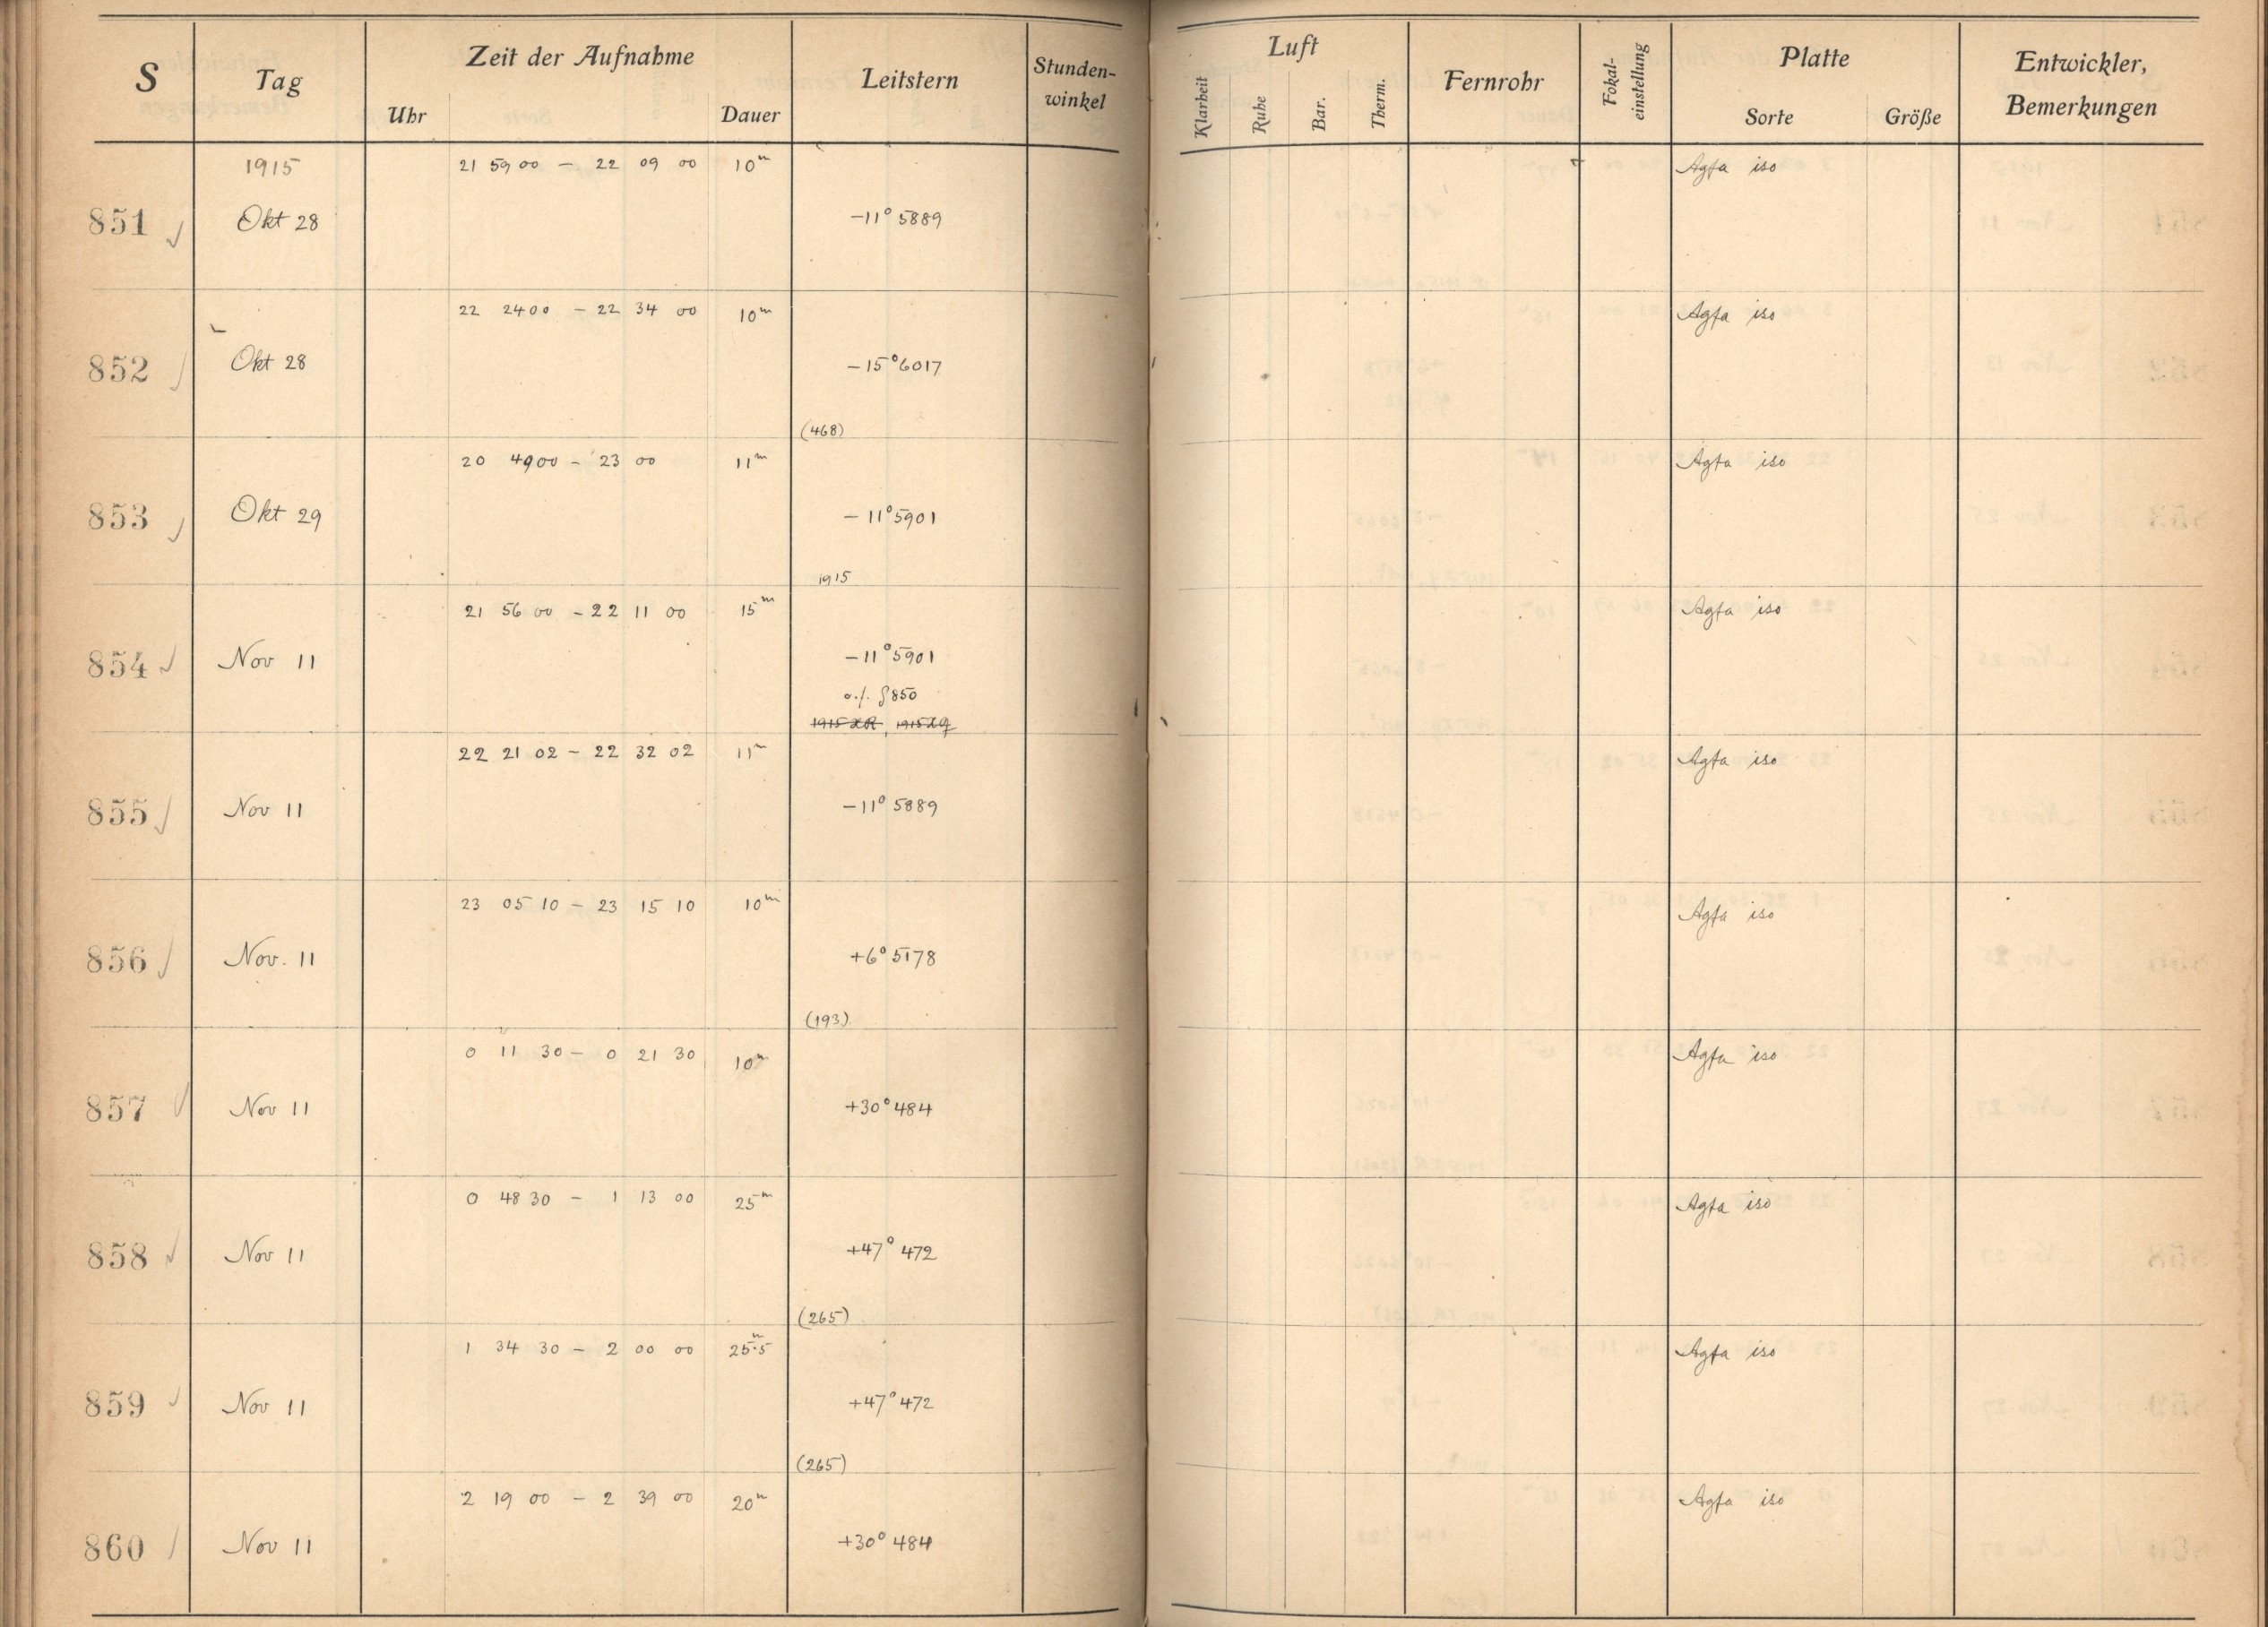 S Tag Zeit der Aufnahme Leitstern Stunden-winkel Luft Fernrohr Fokal-einstellung Platte Entwickler, Bemerkungen
Uhr Dauer Klarheit Ruhe Bar. Therm. Sorte Größe
1915 21 59 00 – 22 09 00 10m Agfa iso
851 Okt 28 –11° 5889
22 24 00 – 22 34 00 10m Agfa iso
852 Okt 28 –15° 6017
(468)
20 49 00 – 23 00 11m Agfa iso
853 Okt 29 –11° 5901
1915
21 56 00 – 22 11 00 15m Agfa iso
854 Nov 11 –11° 5901
850
22 21 02 – 22 32 02 11m Agfa iso
855 Nov 11 –11° 5889
23 05 10 – 23 15 10 10m Agfa iso
856 Nov. 11 +6° 5178
(193)
0 11 30 – 0 21 30 10m Agfa iso
857 Nov 11 +30° 484
0 48 30 – 1 13 00 25m Agfa iso
858 Nov 11 +47° 472
(265)
1 34 30 – 2 00 00 25m.5 Agfa iso
859 Nov 11 +47° 472
(265)
2 19 00 – 2 39 00 20m Agfa iso
860 Nov 11 +30° 484